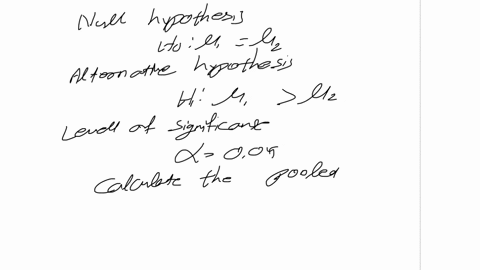 Null hypothesis
H0: μ1 = μ2
Alternative hypothesis
H1: μ1 > μ2
Level of significant
α = 0.05
Calculate the pooled